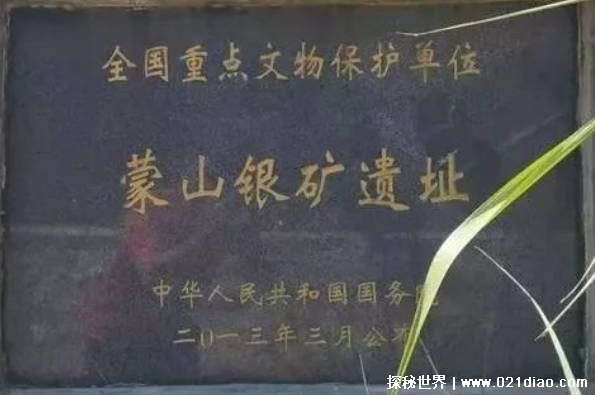 全国重点文物保护单位
蒙山银矿遗址
中华人民共和国国务院
二〇一三年三月公布
探秘世界 | www.021diao.com